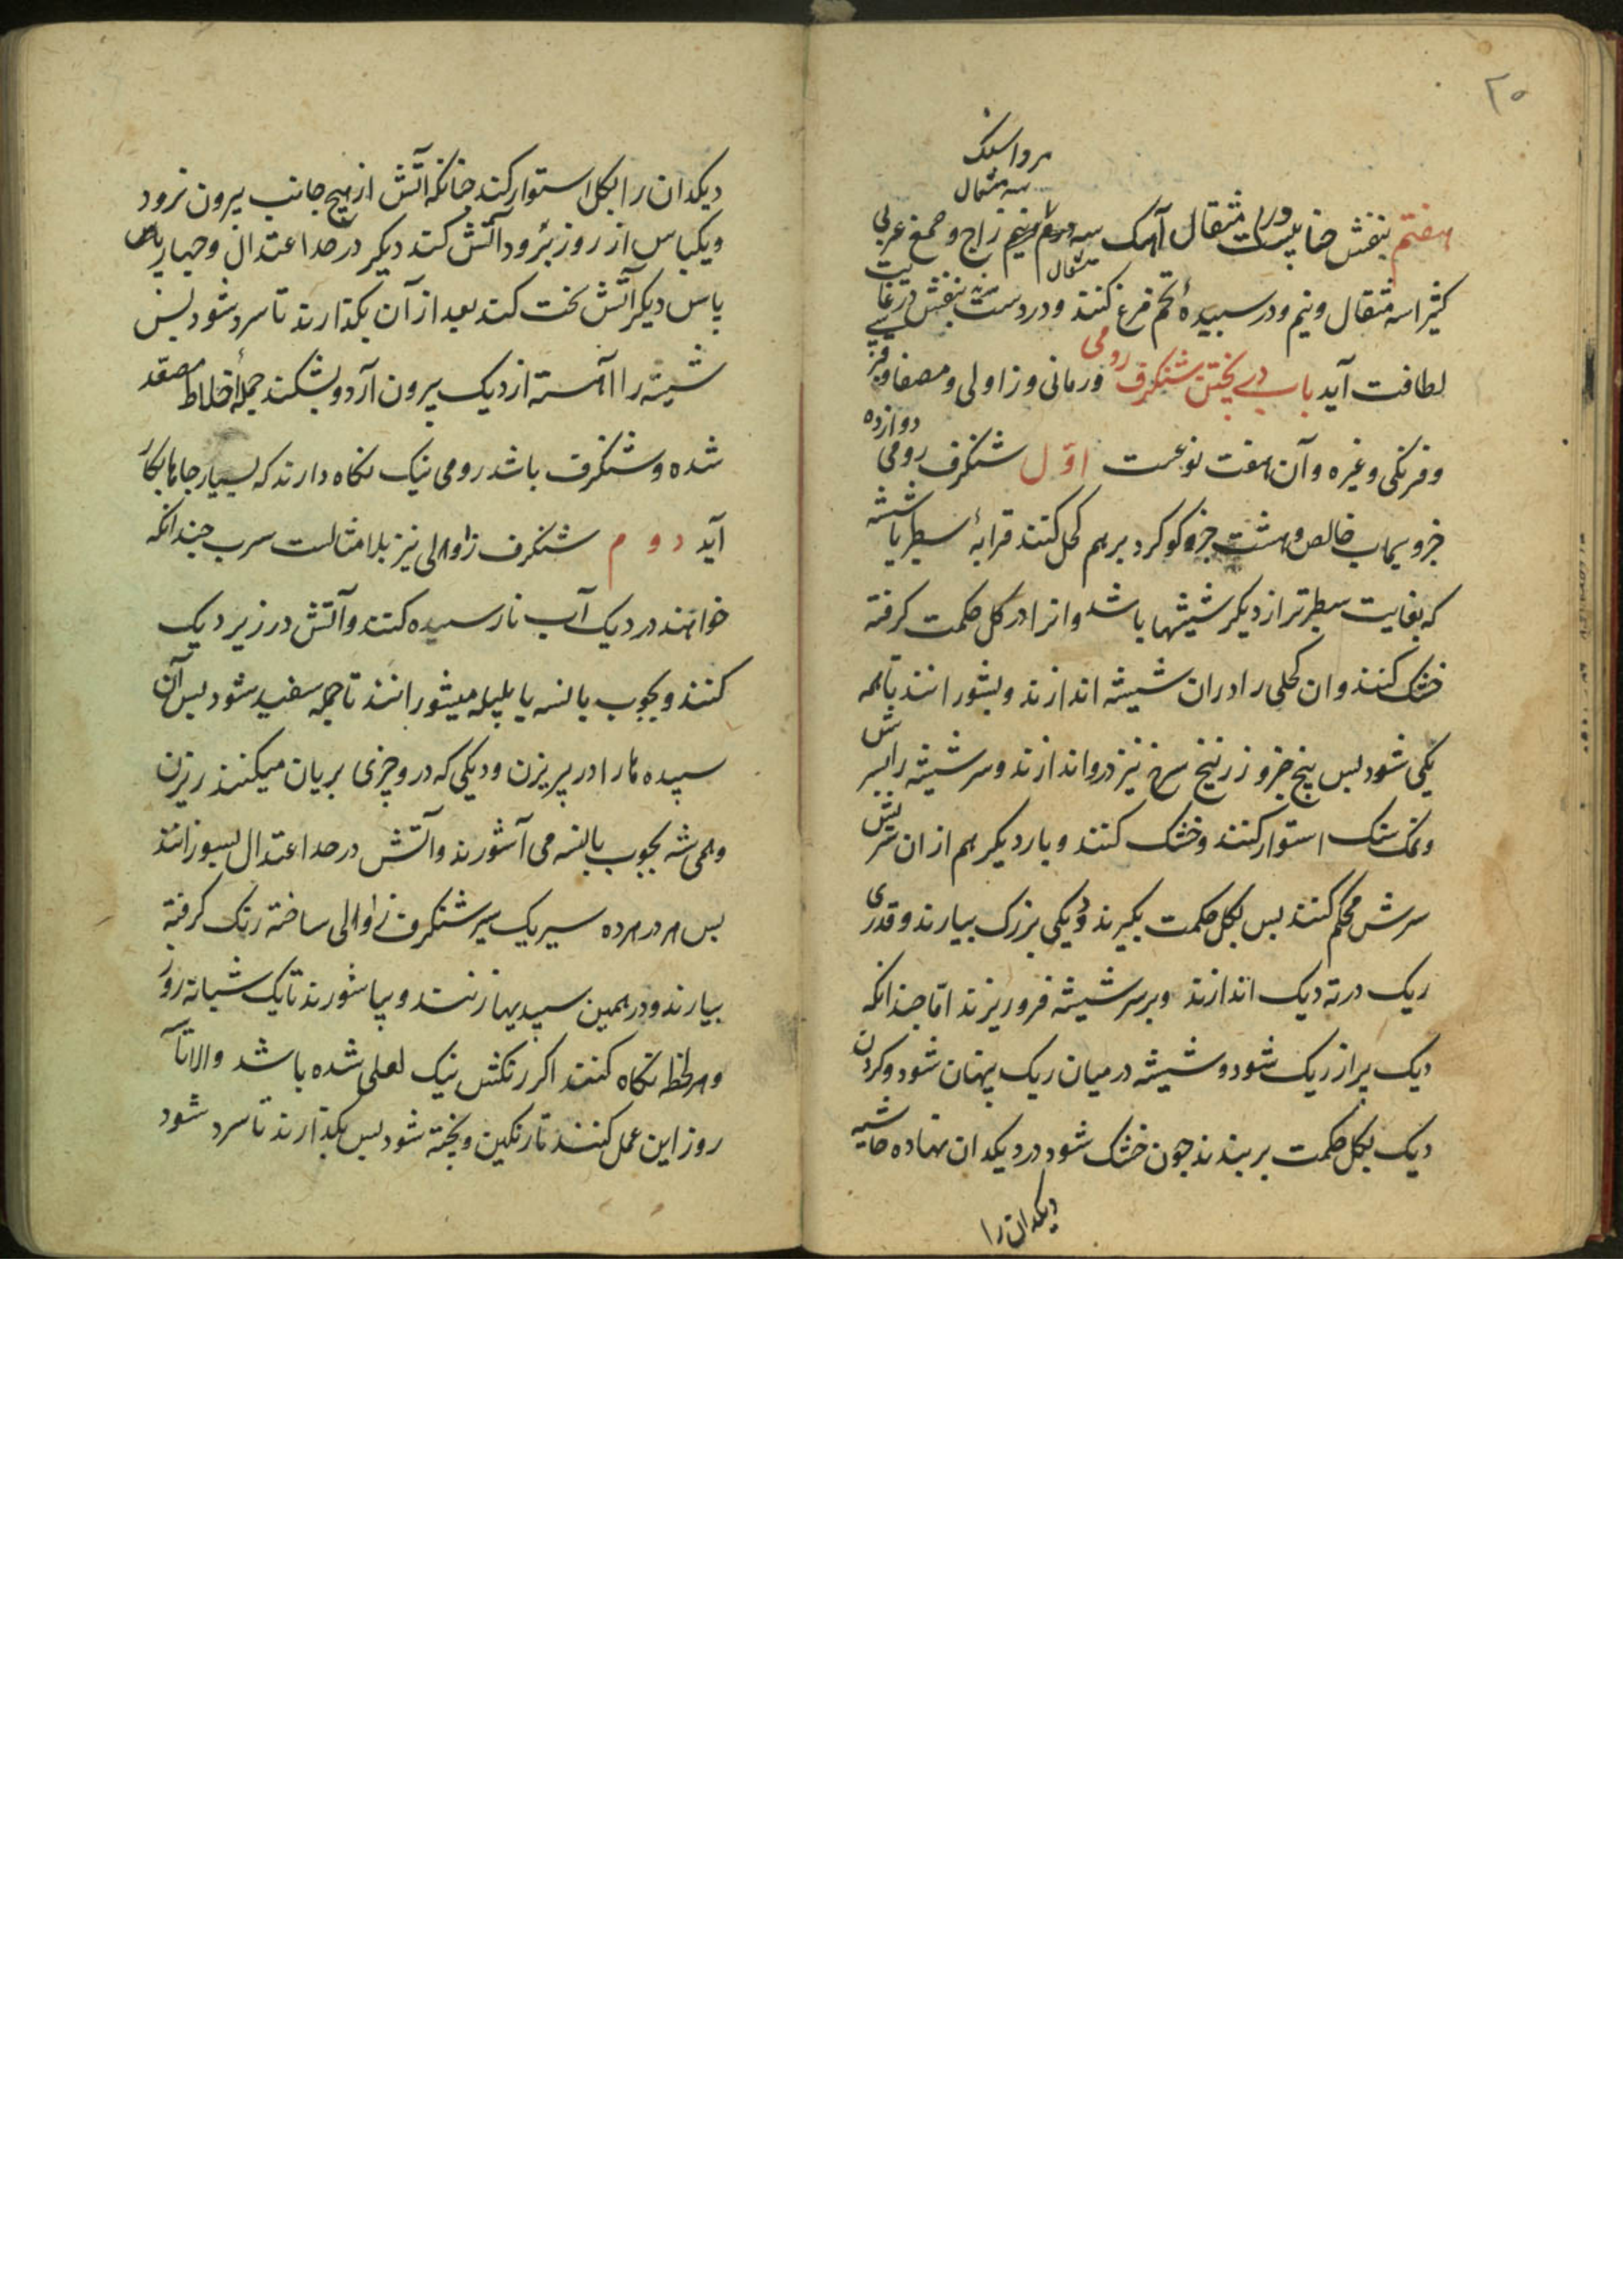 ۲۰
مرداسنک
سه مثقال
هفتم بنفش حنا بیست مثقال آهک سه درم و نیم زاج و صمغ عربی
مثقال
کثیرا سه مثقال و نیم و در سپیدهٔ تخم مرغ کنند و در دست بنفش در غایت
لطافت آید باب در پختن شنکرف رومی و رمانی و زاولی و مصفا و
و فرنکی و غیره و آن هفت نوعست اوّل شنکرف رومی دوازده
جزو سیماب خالص و هشت جزو کوکرد بر هم کحل کنند قرابهٔ سطبر یا شیشه
که بغایت سطبرتر از دیکر شیشها باشد و انرا در کل حکمت کرفته
خشک کنند و ان کحلی را دران شیشه اندازند و بشورانند تا همه
یکی شود بس پنج جزو زرنیخ سرخ نیز درو اندازند و سر شیشه را بسر
و نمک سنک استوار کنند و خشک کنند و بار دیکر هم از ان سریش
سرش محکم کنند بس بکل حکمت بکیرند و دیکی بزرک بیارند و قدری
ریک در ته دیک اندازند و بر سر شیشه فرو ریزند اما چندانکه
دیک پر از ریک شود و شیشه در میان ریک پنهان شود و کردن
دیک بکل حکمت بر بندند چون خشک شود در دیکدان نهاده حاشیه
دیکدان را
دیکدان را بکل استوار کند چنانکه آتش از هیچ جانب بیرون نرود
و یکپاس از روز برود آتش کند دیکر در حد اعتدال و چهار پاس
پاس دیکر آتش سخت کند بعد از آن بکذارند تا سرد شود بس
شیشه را آهسته از دیک بیرون آرد و بشکند جملهٔ اخلاط مصعّد
شده و شنکرف باشد رومی نیک نکاه دارند که بسیار جاها بکار
آید دوم شنکرف زاولی نیز بدا مثالست سرب چندانکه
خواهند در دیک آب نارسیده کنند و آتش در زیر دیک
کنند و بچوب یا لنسه یا بلیله میشورانند تا جمله سفید شود بس آن
سپیده ها را در پریزن و دیکی که درو چیزی بریان میکنند ریزن
و همی شه بچوب بالنسه می آشورند و آتش در حد اعتدال بسوزانند
بس هر در هر ده سیر یک سیر شنکرف زاولی ساخته رنک کرفته
بیارند و در همین سپیدیها زنند و بیاشورند تا یک شبانه روز
و هر لحظه نکاه کنند اکر رنکش نیک لعلی شده باشد و الا تا
روز این عمل کنند تا رنکین و پخته شود بس بکذارند تا سرد شود